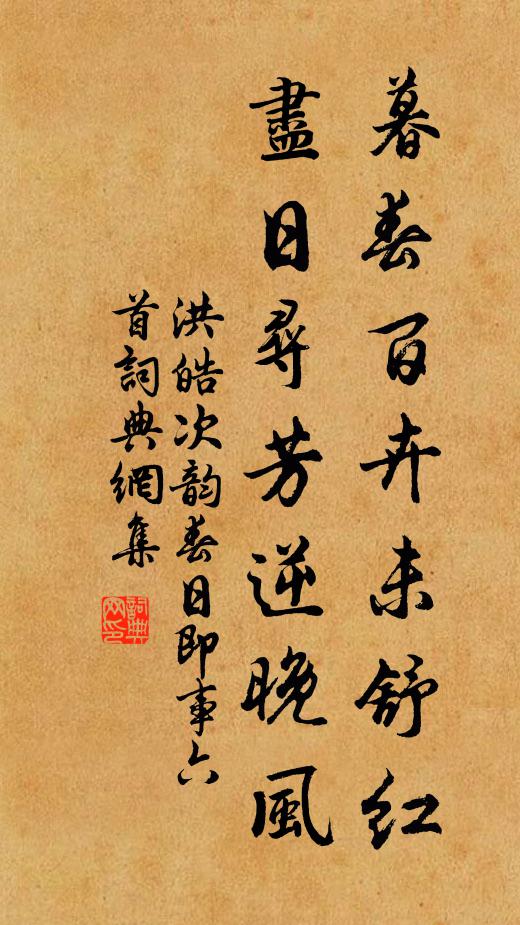 暮春百卉未舒红
盡日尋芳逆晚風
洪皓次韵春日即事六
首詞典網集
詞典
网印